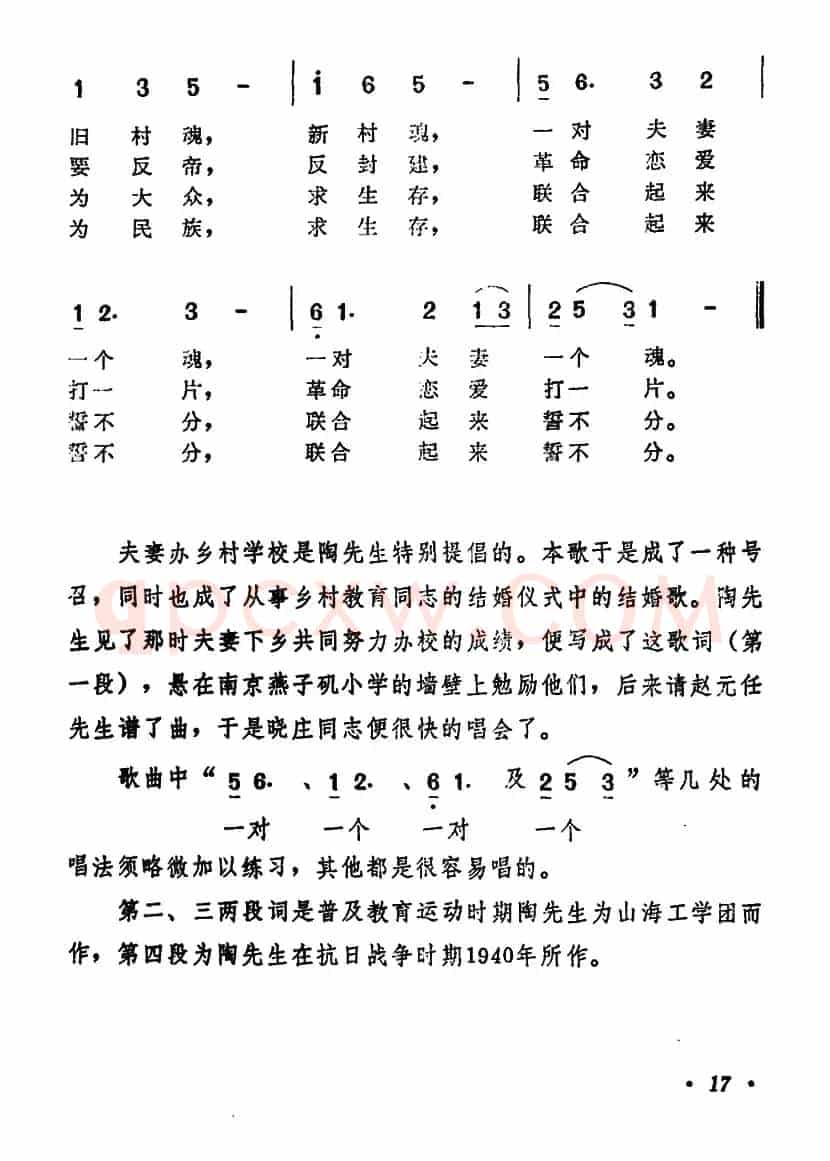 1 3 5 - | i 6 5 - | 5 6. 3 2 |
旧 村 魂， 新 村 魂， 一 对 夫 妻
要 反 帝， 反 封 建， 革 命 恋 爱
为 大 众， 求 生 存， 联 合 起 来
为 民 族， 求 生 存， 联 合 起 来
1 2. 3 - | 6 1. 2 1 3 | 2 5 3 1 - ‖
一个 魂， 一对 夫 妻 一个 魂。
打一 片， 革命 恋 爱 打一 片。
誓不 分， 联合 起 来 誓不 分。
誓不 分， 联合 起 来 誓不 分。
夫妻办乡村学校是陶先生特别提倡的。本歌于是成了一种号
召，同时也成了从事乡村教育同志的结婚仪式中的结婚歌。陶先
生见了那时夫妻下乡共同努力办校的成绩，便写成了这歌词（第
一段），悬在南京燕子矶小学的墙壁上勉励他们，后来请赵元任
先生谱了曲，于是晓庄同志便很快的唱会了。
歌曲中“5 6. 、1 2. 、6 1. 及 2 5 3 ”等几处的
一对 一个 一对 一个
唱法须略微加以练习，其他都是很容易唱的。
第二、三两段词是普及教育运动时期陶先生为山海工学团而
作，第四段为陶先生在抗日战争时期1940年所作。
• 17 •